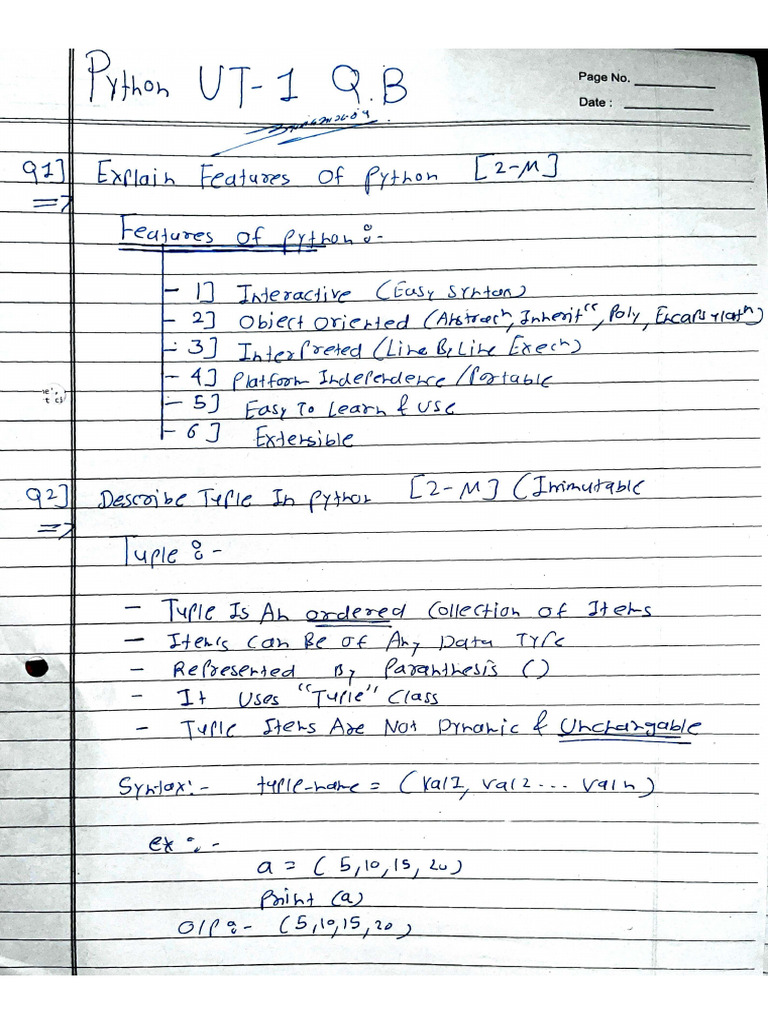 Python UT-1 Q.B
Page No.
Date :
Q1] Explain Features Of Python [2-M]
=>
Features Of Python :-
- 1] Interactive (Easy Syntax)
- 2] Object Oriented (Abstracn, Inherit", Poly, Encapsulatn)
- 3] Interpreted (Line By Line Execn)
- 4] Platform Independence / Portable
- 5] Easy To Learn & Use
- 6] Extensible
Q2] Describe Tuple In Python [2-M] (Immutable
=>
Tuple :-
- Tuple Is An ordered Collection Of Items
- Items Can Be Of Any Data Type
- Represented By Paranthesis ()
- It Uses "Tuple" Class
- Tuple Items Are Not Dynamic & Unchangable
Syntax:- tuple-name = (val1, val2... valn)
ex :-
a = (5,10,15,20)
Print (a)
O/P :- (5,10,15,20)